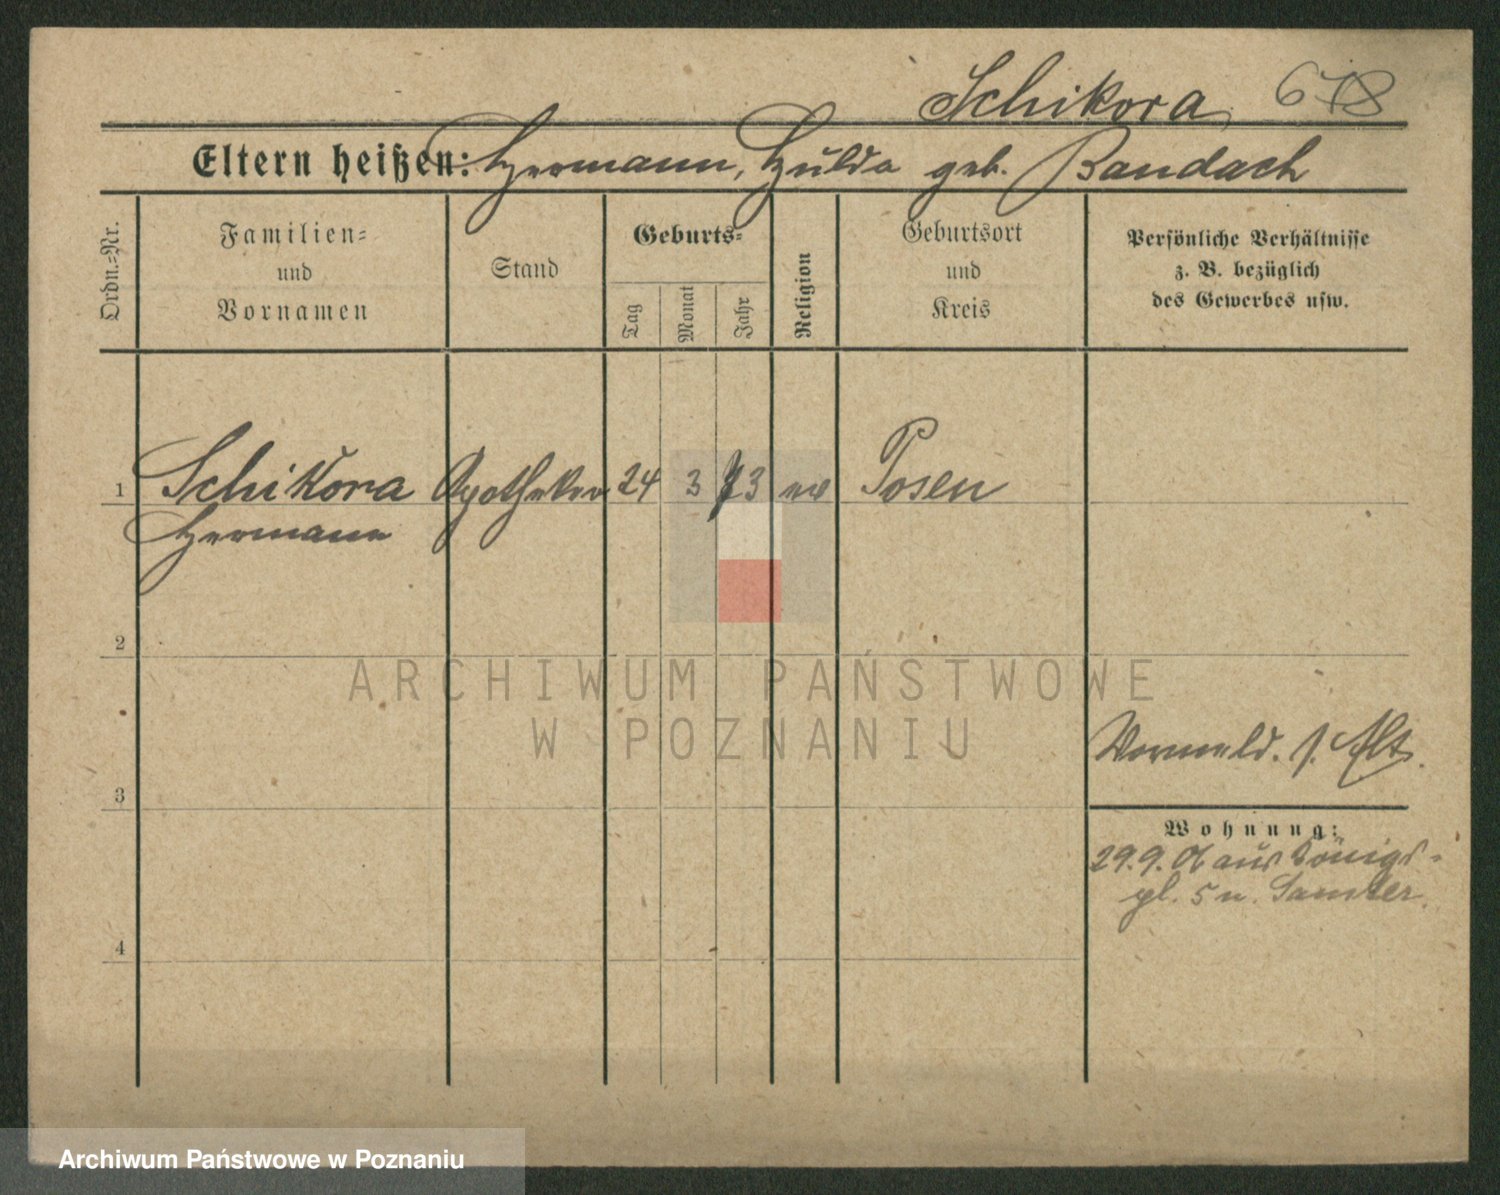 Schikora 678
Eltern heißen: Hermann, Hulda geb. Bandach
Ordn.-Nr.
Familien-
und
Vornamen
Stand
Geburts-
Tag
Monat
Jahr
Religion
Geburtsort
und
Kreis
Persönliche Verhältnisse
z. B. bezüglich
des Gewerbes usw.
1 Schikora Apotheker 24 3 73 ev Posen
Hermann
2
ARCHIWUM PAŃSTWOWE
W POZNANIU
Vormeld. s. Alt.
3
Wohnung:
29.9.06 aus Königs-
pl. 5 n. Samter.
4
Archiwum Państwowe w Poznaniu